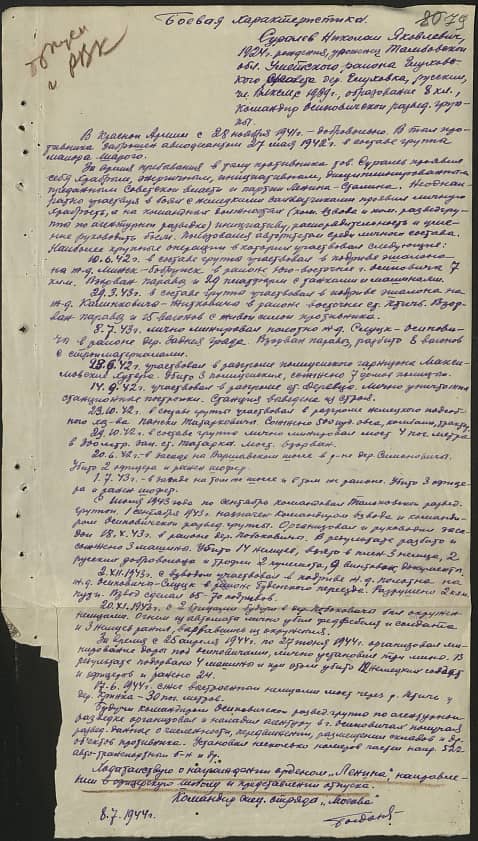 Боевая характеристика.
80 79
отпуск
и РВК
Суралев Николай Яковлевич,
1924г. рождения, уроженец Тамбовской
обл. Уметского района
русский,
чл. ВЛКСМ с 1939г., образование 8 кл.,
командир Осиповичской развед. группы.
В Красной Армии с 28 ноября 1941г. – добровольно. В тыл про-
тивника заброшен авиадесантом 27 мая 1942г. в составе группы
майора
За время пребывания в тылу противника тов. Суралев проявил
себя храбрым, энергичным, инициативным, дисциплинированным
преданным Советской власти и партии Ленина-Сталина. Неоднок-
ратно участвуя в боях с немецкими захватчиками проявил личную
храбрость, а на командных должностях (ком. взвода и ком. разведгруп-
пы по агентурной разведке) инициативу, распорядительность и уме-
ние руководить боем. Пользовался авторитетом среди личного состава.
Наиболее крупные операции в которых участвовал следующие:
10.6.42г. в составе группы участвовал в подрыве эшелона
на ж.д. Минск-Бобруйск в районе юго-восточнее г. Осиповичи 7
клм. Взорван паравоз и 29 платформ с танками и машинами.
29.3.43г. в составе группы участвовал в подрыве эшелона на
ж.д. Калинковичи-Жлобин в районе восточнее ст. Птичь. Взор-
ван паравоз и 15 вагонов с живой силой противника.
8.7.43г. лично минировал полотно ж.д. Слуцк-Осипови-
чи в районе дер. Взорван паравоз, разбито 8 вагонов
с стройматериалами.
28.6.42г. участвовал в разгроме полицейского гарнизона Макси-
мовские хутора. Убито 3 полицейских, сожжено 7 домов полицаев.
14.9.42г. участвовал в разгроме ст. Деревцы. Лично уничтожал
станционные постройки. Станция выведена из строя.
23.10.42г. в составе группы участвовал в разгроме немецкого подсоб-
ного хоз-ва Сожжено 500 пуд. овса,
29.10.42г. в составе группы лично минировал мост 4 пог. метра
в 800 метр. зап. ст. Татарка. Мост взорван.
20.6.42г. – в засаде на Варшавском шоссе в р-не дер. Симоновичи.
Убито 2 офицера и ранен шофер.
1.7.43г. – в засаде на том же шоссе и в том же районе. Убито 3 офице-
ра и ранен шофер.
С июня 1943 года по сентябрь командовал развед.
группой. 1 сентября 1943г. назначен командиром взвода и команди-
ром Осиповичской развед. группы. Организовал и руководил заса-
дой 18.X.43г. в районе дер. В результате разбито и
сожжено 3 машины. Убито 14 немцев, взято в плен 3 немца, 2
русских добровольца и трофеи 2 пулемета, 9 винтовок, документы.
2.XII.1943г. с взводом участвовал в подрыве ж.д. полотна на
ж.д. Осиповичи-Слуцк в районе переезда. Разрушено 2 клм.
пути. Взвод сделал 65-70 подрывов.
20.XI.1943г. с 2 бойцами будучи в дер. был окружен
немцами. Огнем из автомата лично убил фельдфебеля и солдата
и 3 немцев ранил, вырвавшись из окружения.
За время с 25 апреля 1944г. по 27 июня 1944г. организовал ми-
нирование дорог под Осиповичами, лично установил три мины. В
результате подорвано 4 машины и при этом убито 12 немецких солдат
и офицеров и ранено 24.
17.6.1944г. сжег построенный немцами мост через р. Птичь у
дер. – 30 пог. метров.
Будучи командиром Осиповичской развед. группы по агентурной
разведке организовал и насадил агентуру в г. Осиповичах получая
развед. данные о численности, передвижении, размещении складов и др.
объектов противника. Установил несколько номеров частей напр. 522
авто-транспортный б-н и др.
Ходатайствую о награждении орденом „Ленина“, направле-
нии в офицерскую школу и представлении отпуска.
Командир спец. отряда „Москва“
8.7.1944г.